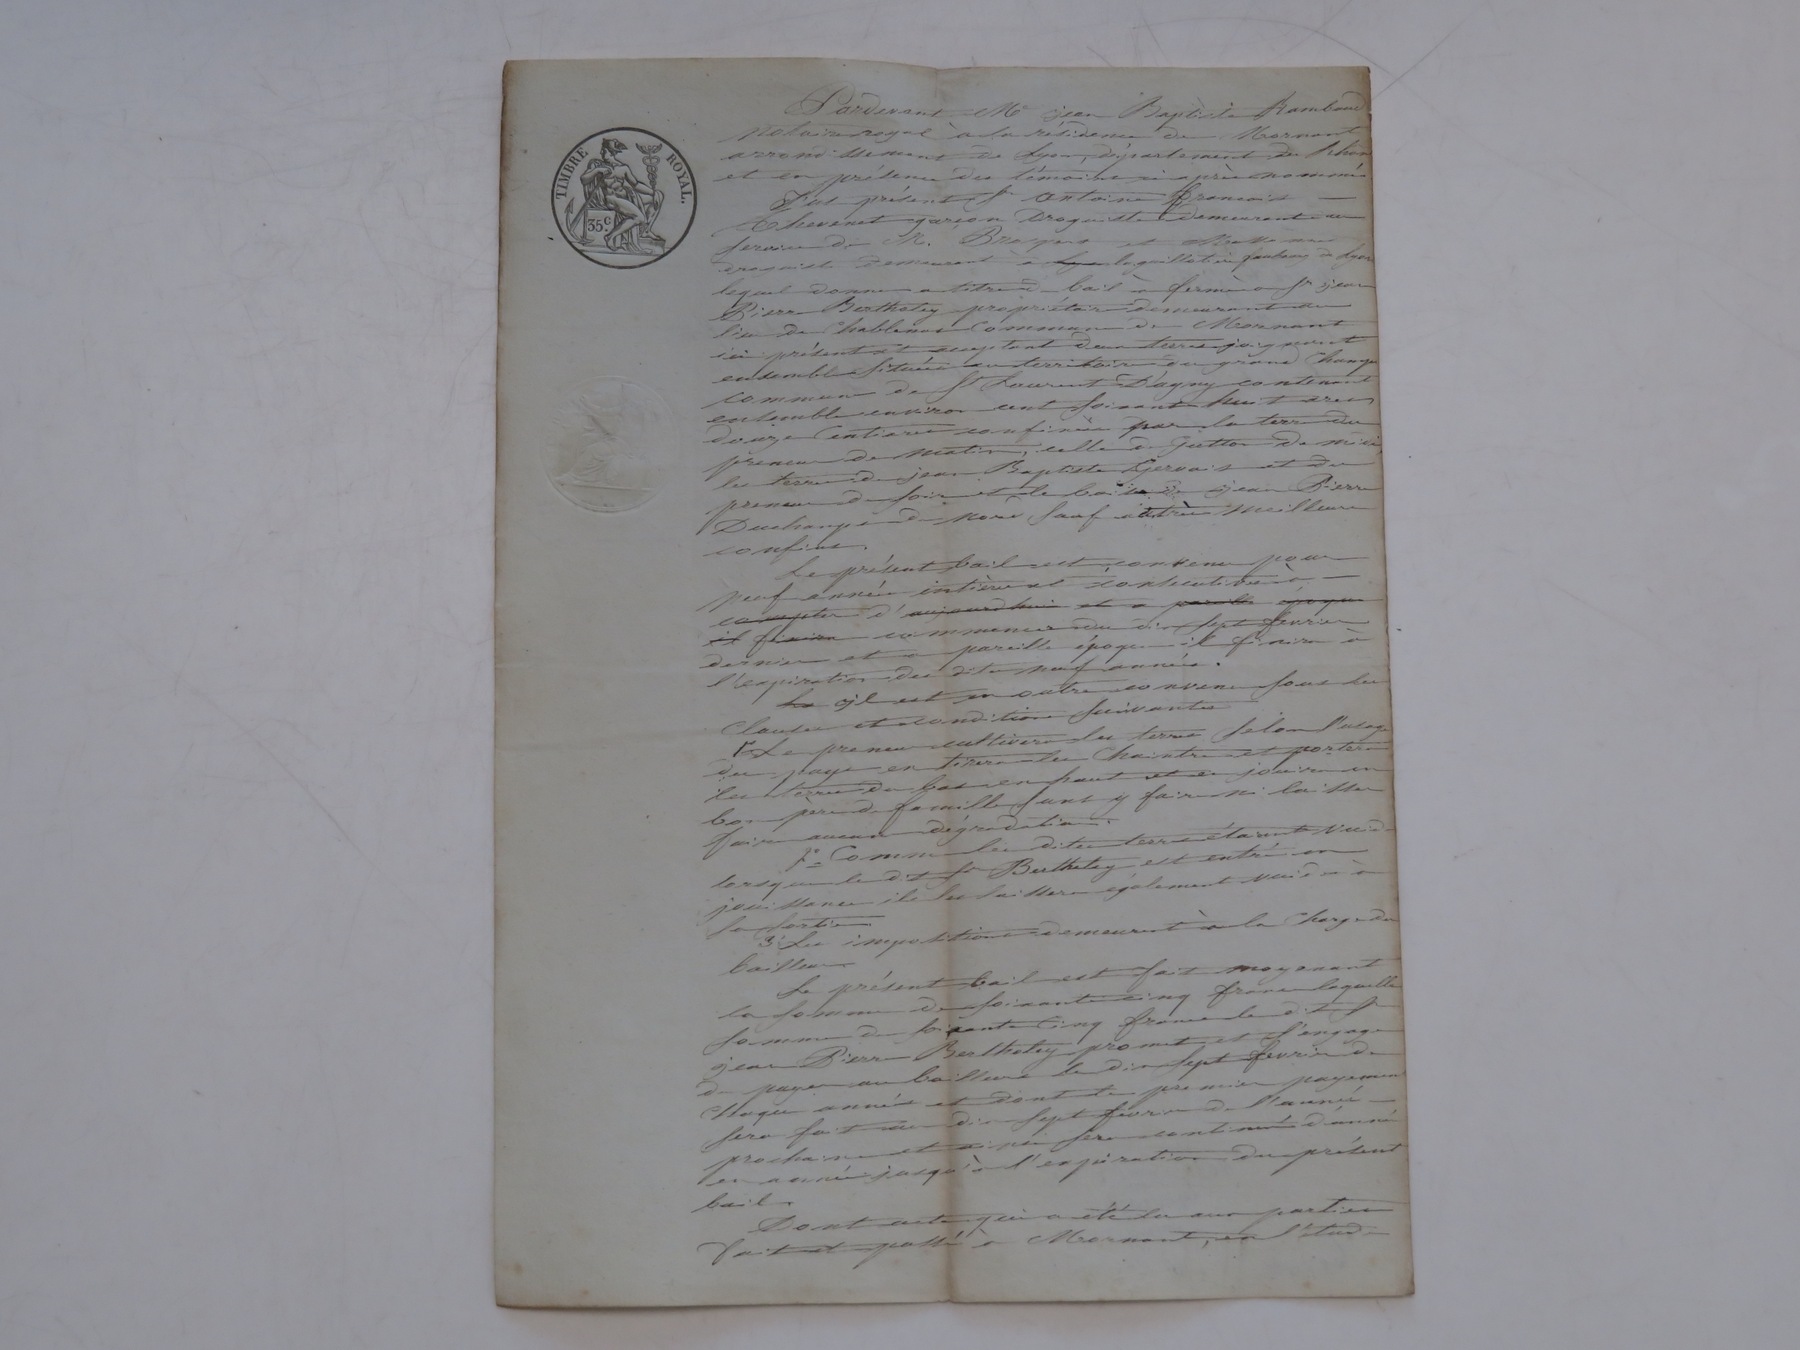 TIMBRE ROYAL.
35 c.
Pardevant Me jean Baptiste Rambaud
notaire royal à la résidence de Mornant
arrondissement de Lyon, département du Rhône
et en présence des témoins ci après nommés
Fut présent Sr Antoine françois
Thevenet garçon droguiste demeurant au
service de M. et
droguiste demeurant à la guillotière faubourg de Lyon
lequel donne a titre de bail à ferme a Sr jean
Pierre Bertheley propriétaire demeurant au
lieu de Chablenas commune de Mornant
ici présent et acceptant deux terres joignant
ensemble située au territoire du grand Champ
commune de St Laurent D'agny contenant
ensemble environ cent soixante huit ares
douze centiares confinées par la terre du
preneur de matin, celle de de midi
les terres de jean Baptiste Gervais et du
preneur de soir et le bois de jean Pierre
Duchamp de nord sauf autres meilleurs
confins.
Le présent bail est convenu pour
neuf années entières et consécutives à
compter d'aujourdhui et a pareille époque
il finira commencer du dix sept fevrier
dernier et a pareille époque il finira à
l'expiration des dites neuf années.
Le il est en outre convenu sous les
clauses et conditions suivantes
1° Le preneur cultivera les terres selon l'usage
du pays en tirera les chaintres et portera
les terres du bas en haut et en jouira en
bon père de famille sans y faire ni laisser
faire aucune dégradation.
2° Comme les dites terres étaient vuides
lorsque le dit Sr Bertheley est entré en
jouissance il les laissera également vuides à
sa sortie.
3° Les impositions demeurent à la charge du
bailleur.
Le présent bail est fait moyenant
la somme de soixante cinq francs laquelle
somme de soixante cinq francs le dit Sr
jean Pierre Bertheley promet et s'engage
de payer au bailleur le dix sept fevrier de
chaque année et dont le premier payement
sera fait au dix sept fevrier de l'année
prochaine et ainsi sera continué d'année
en année jusqu'à l'expiration du présent
bail.
Dont acte qui a été lu aux parties
Fait et passé à Mornant, en l'étude